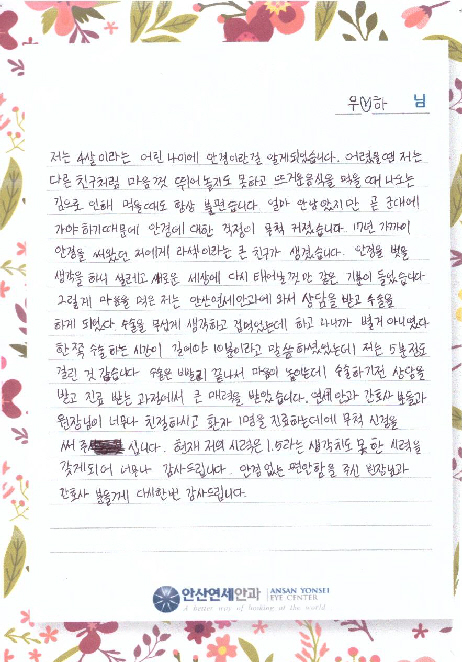 우♡하 님
저는 4살이라는 어린 나이에 안경이란걸 알게되었습니다. 어렸을땐 저는
다른 친구처럼 마음껏 뛰어놀지도 못하고 뜨거운음식을 먹을때 나오는
김으로 인해 먹을때도 항상 불편했습니다. 얼마 안남았지만 곧 군대에
가야 하기때문에 안경에 대한 걱정이 무척 커졌습니다. 17년 가까이
안경을 써왔던 저에게 라섹이라는 큰 친구가 생겼습니다. 안경을 벗을
생각을 하니 설레고 새로운 세상에 다시 태어날것만 같은 기분이 들었습니다
그렇게 마음을 먹은 저는 안산연세안과에 와서 상담을 받고 수술을
하게 되었다 수술을 무섭게 생각하고 겁먹었는데 하고 나니까 별거 아니였다
한쪽 수술하는 시간이 길어야 10분이라고 말씀하셨었는데 저는 5분정도
걸린 것 같습니다 수술은 빠르게 끝나서 마음이 놓이는데 수술하기전 상담을
받고 진료 받는 과정에서 큰 매력을 받았습니다. 연세안과 간호사 분들과
원장님이 너무나 친절하시고 환자 1명을 진료하는데에 무척 신경을
써 십니다. 현재 저의 시력은 1.5라는 생각치도 못한 시력을
갖게되어 너무나 감사드립니다. 안경없는 편안함을 주신 원장님과
간호사 분들께 다시한번 감사드립니다.
안산연세안과 ANSAN YONSEI
EYE CENTER
A better way of looking at the world